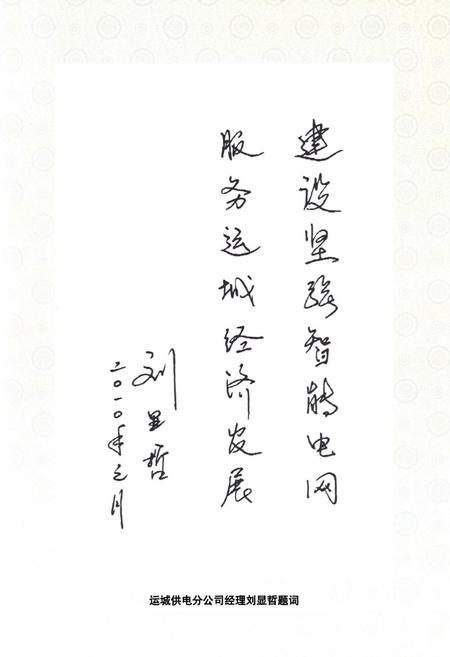 建设坚强智能电网
服务运城经济发展
刘显哲
二〇一〇年三月
运城供电分公司经理刘显哲题词